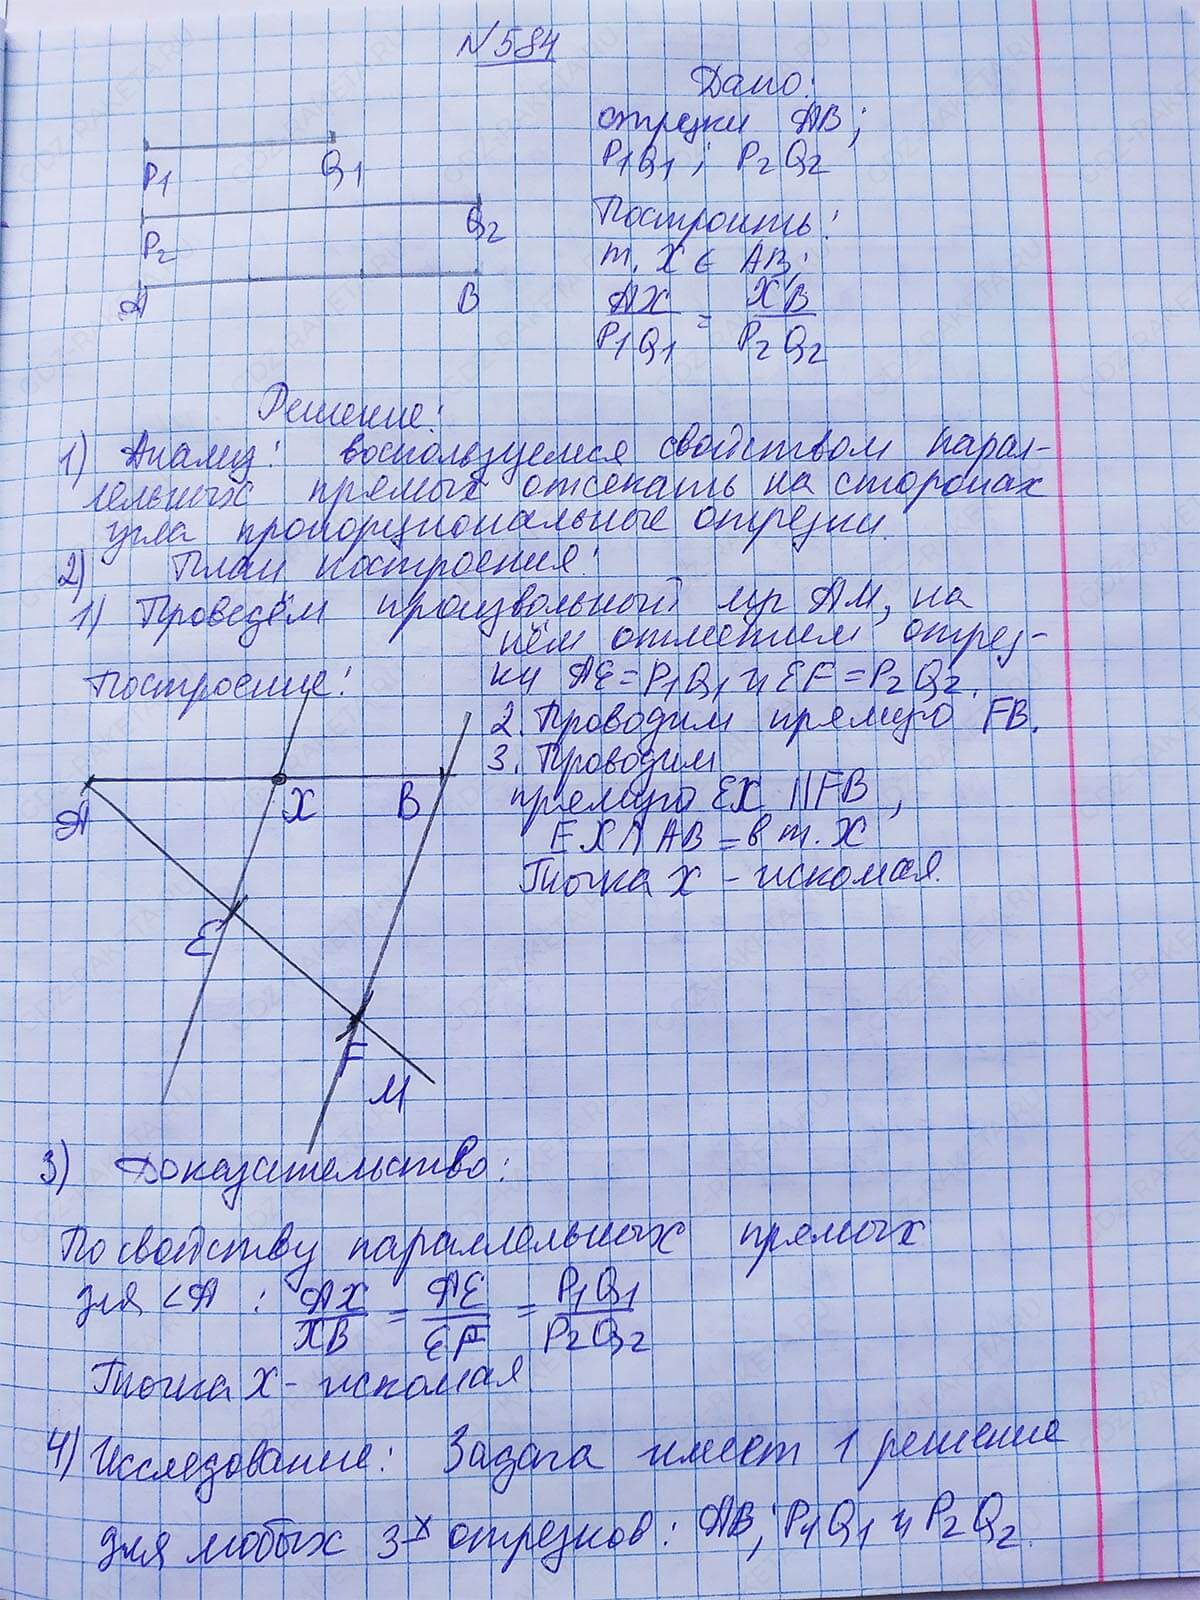 №584
Дано:
отрезки AB;
P1Q1; P2Q2
Построить:
т. X ∈ AB:
AX/P1Q1 = XB/P2Q2
P1 Q1
P2 Q2
A B
Решение:
1) Анализ: воспользуемся свойством парал-
лельных прямых отсекать на сторонах
угла пропорциональные отрезки.
2) План построения:
1) Проведём произвольный луч AM, на
нём отметим отрез-
ки AE=P1Q1 и EF=P2Q2.
2. Проводим прямую FB.
3. Проводим
прямую EX || FB,
EX ∩ AB = в т. X
Точка X – искомая.
Построение:
A X B
E
F
M
3) Доказательство:
По свойству параллельных прямых
для <A : AX/XB = AE/EF = P1Q1/P2Q2
Точка X – искомая
4) Исследование: Задача имеет 1 решение
для любых 3х отрезков: AB; P1Q1 и P2Q2.
GDZ-RAKETA.RU